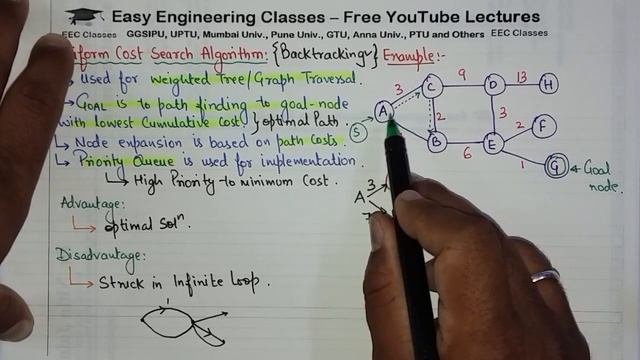 Easy Engineering Classes – Free YouTube Lectures
EEC Classes GGSIPU, UPTU, Mumbai Univ., Pune Univ., GTU, Anna Univ., PTU and Others EEC Classes
iform Cost Search Algorithm: {Backtracking} Example:-
used for weighted Tree/Graph Traversal.
Goal is to path finding to goal-node
with lowest Cumulative Cost. } optimal Path.
Node expansion is based on path Costs.
Priority Queue is used for implementation.
High Priority to minimum Cost.
Advantage:
optimal Solⁿ.
Disadvantage:
Struck in Infinite Loop.
3 C 9 D 13 H
A 2 3 2 F
S B 6 E 1 G Goal node.
A 3
7